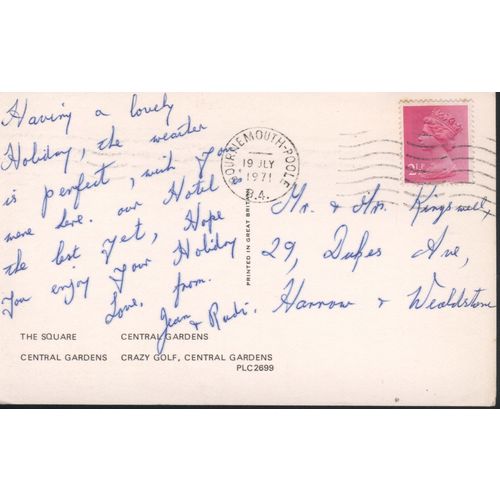 Having a lovely
Holiday, the weather
is perfect, wish you
were here. our Hotel
the best yet, Hope
you enjoy your Holiday
Love, from.
Jean & Rudi.
BOURNEMOUTH-POOLE
19 JLY
1971
PRINTED IN GREAT BRITAIN
Mr. & Mrs. Kingswell,
29, Dukes Ave,
Harrow & Wealdstone
THE SQUARE CENTRAL GARDENS
CENTRAL GARDENS CRAZY GOLF, CENTRAL GARDENS
PLC2699